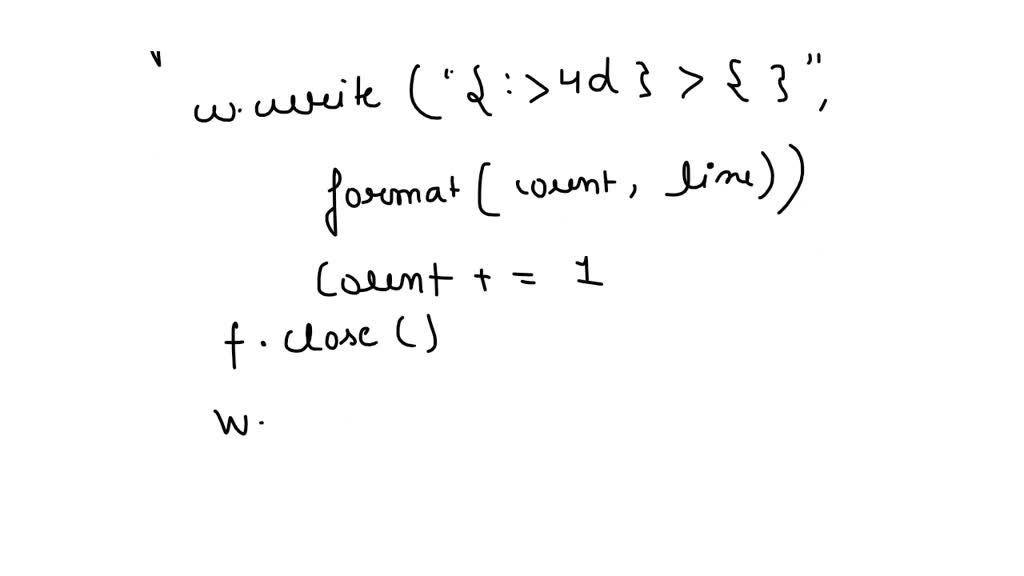 w.write ("{:>4d}>{}",
format(count, line))
Count += 1
f.close()
w.